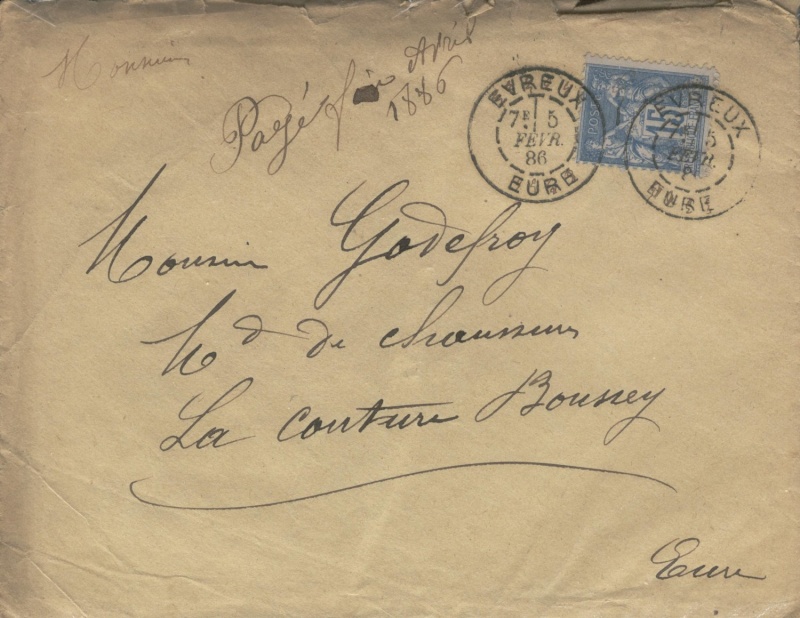 Monsieur
Payé fin Avril
1886
EVREUX
7E 5
FEVR.
86
EURE
POSTE
15
EVREUX
7E 5
FEVR.
EURE
Monsieur Godefroy
Md de chaussures
La Couture Boussey
Eure